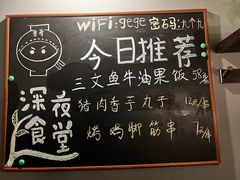 WiFi:gege 密码:九个九
今日推荐
三文鱼牛油果饭 58元
猪肉香芋丸子
烤鸡脚筋串
深夜
食堂